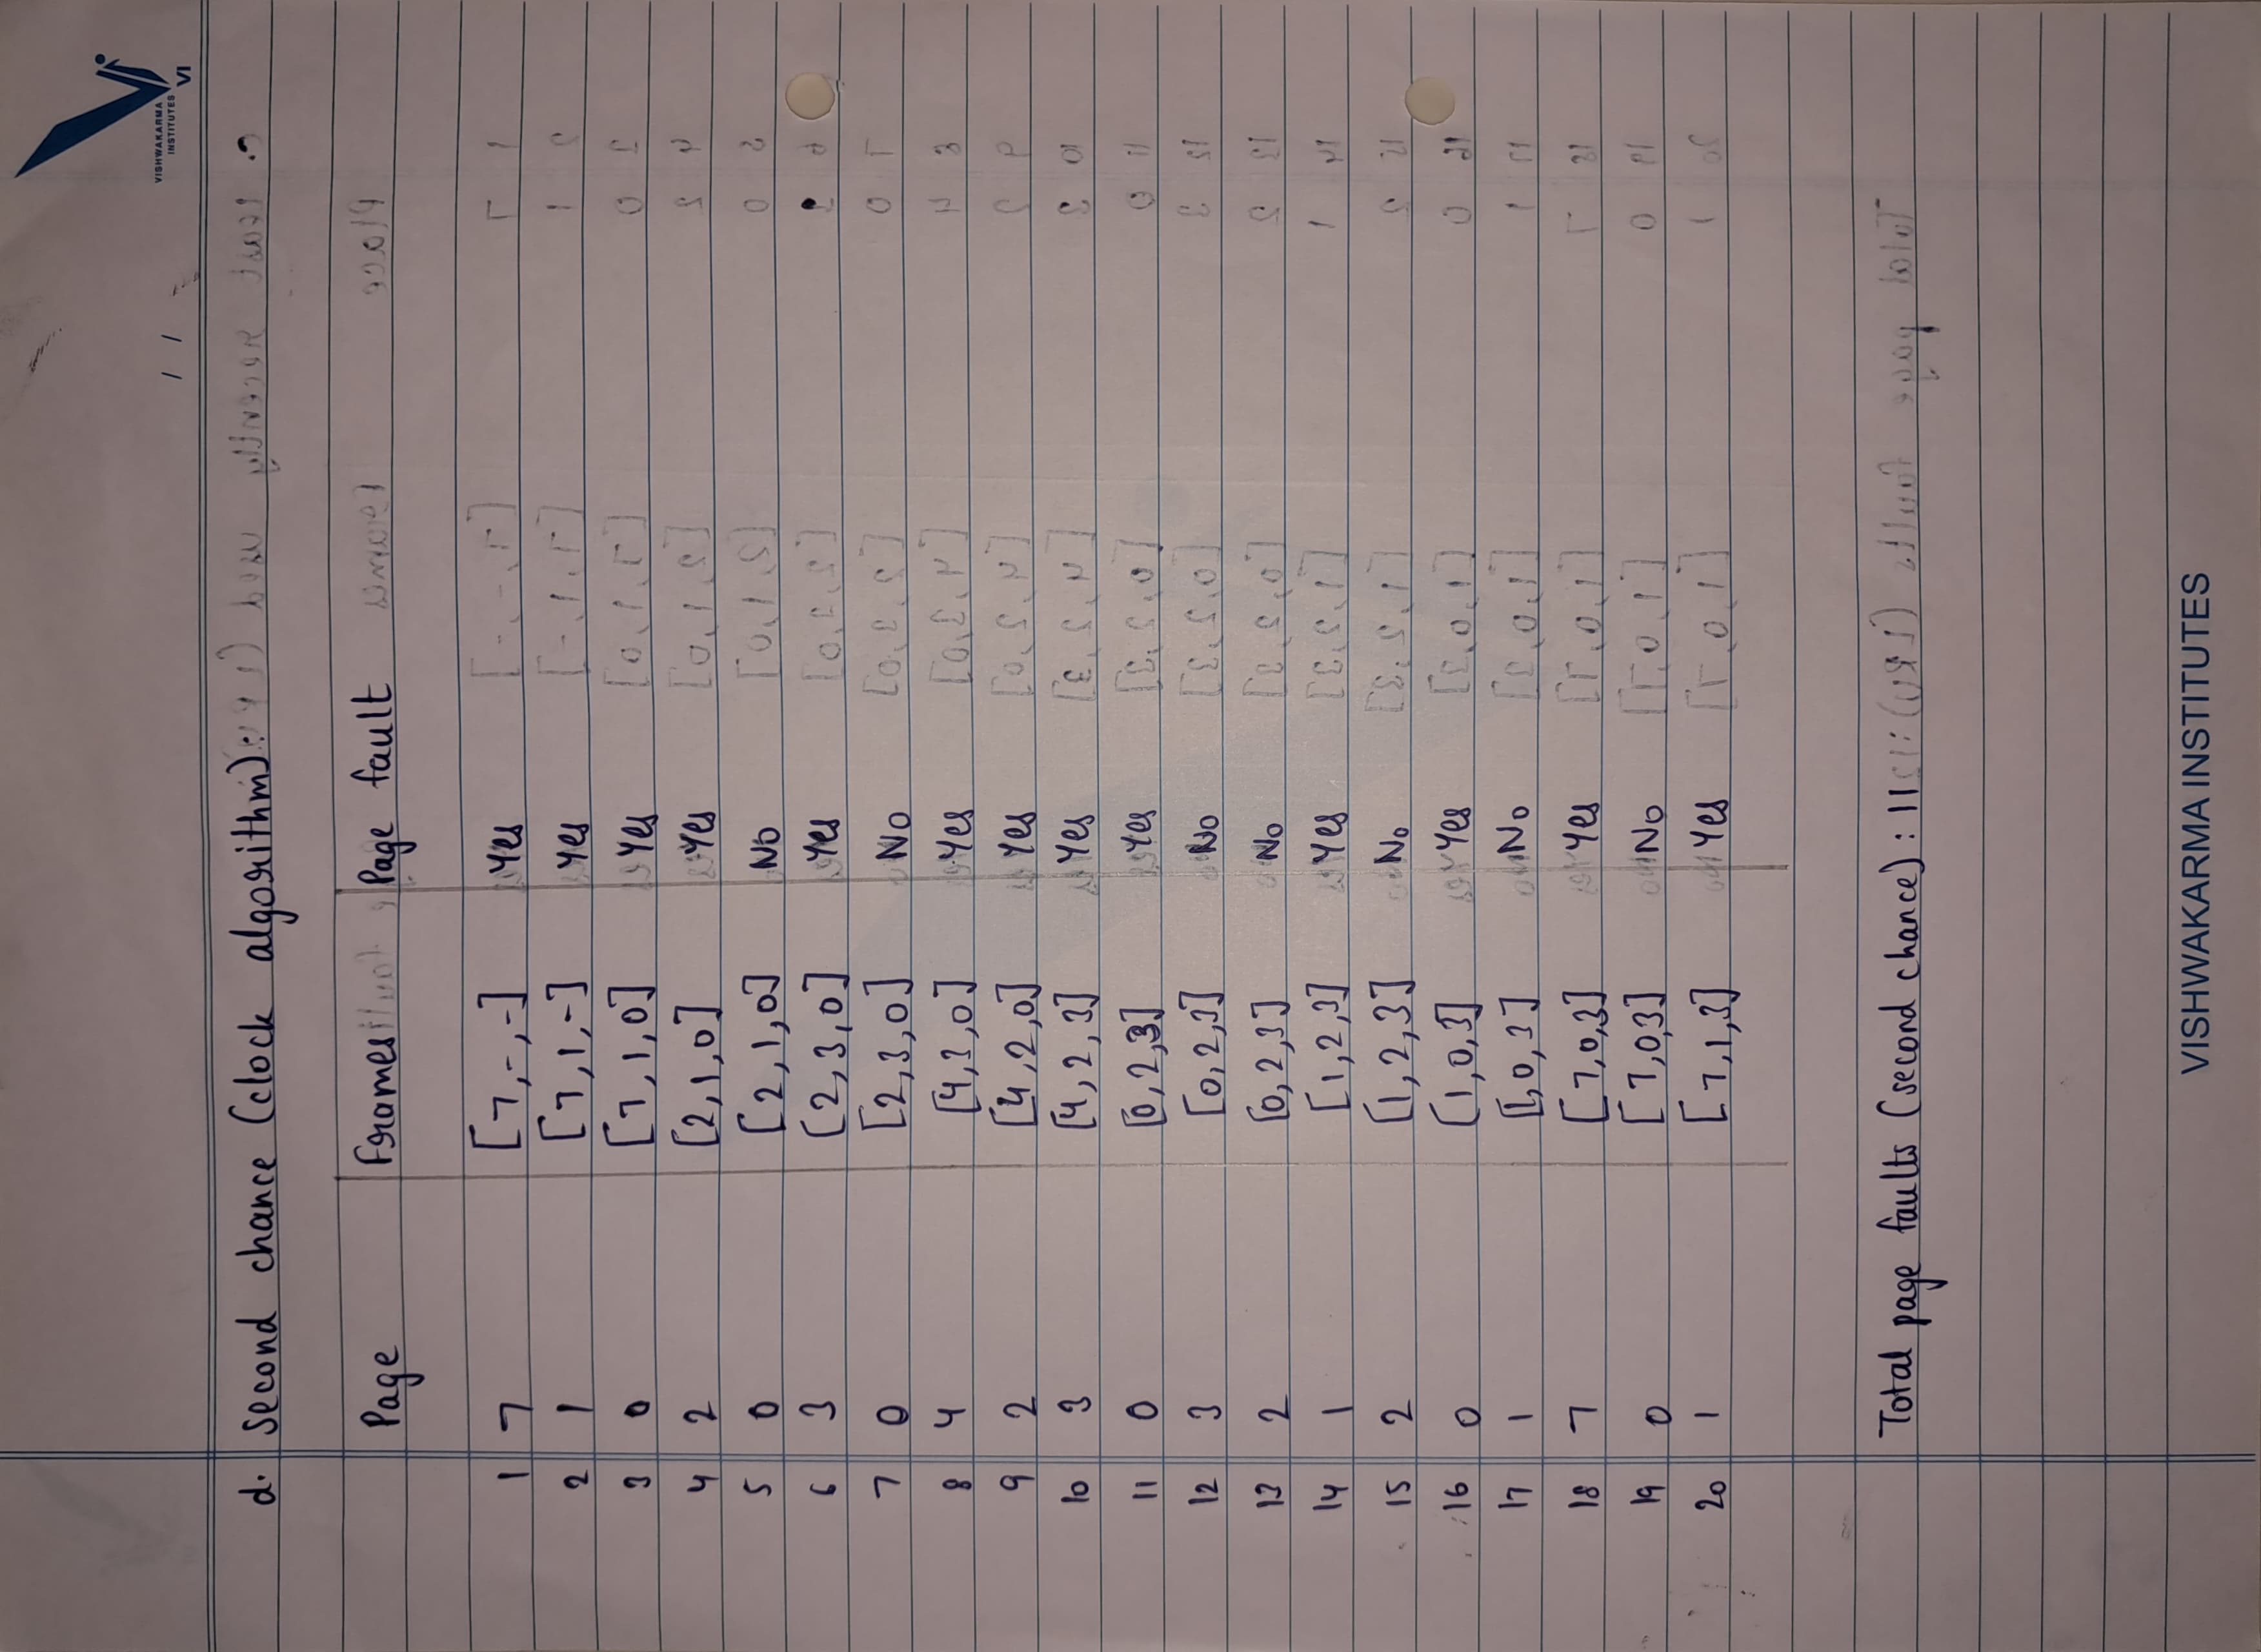 VISHWAKARMA
INSTITUTES
VI
/ /
d. Second chance (clock algorithm):
Page Frames Page fault
1 7 [7,-,-] Yes
2 1 [7,1,-] Yes
3 0 [7,1,0] Yes
4 2 [2,1,0] Yes
5 0 [2,1,0] No
6 3 [2,3,0] Yes
7 0 [2,3,0] No
8 4 [4,3,0] Yes
9 2 [4,2,0] Yes
10 3 [4,2,3] Yes
11 0 [0,2,3] Yes
12 3 [0,2,3] No
13 2 [0,2,3] No
14 1 [1,2,3] Yes
15 2 [1,2,3] No
16 0 [1,0,3] Yes
17 1 [1,0,3] No
18 7 [7,0,3] Yes
19 0 [7,0,3] No
20 1 [7,1,3] Yes
Total page faults (second chance): 11
VISHWAKARMA INSTITUTES